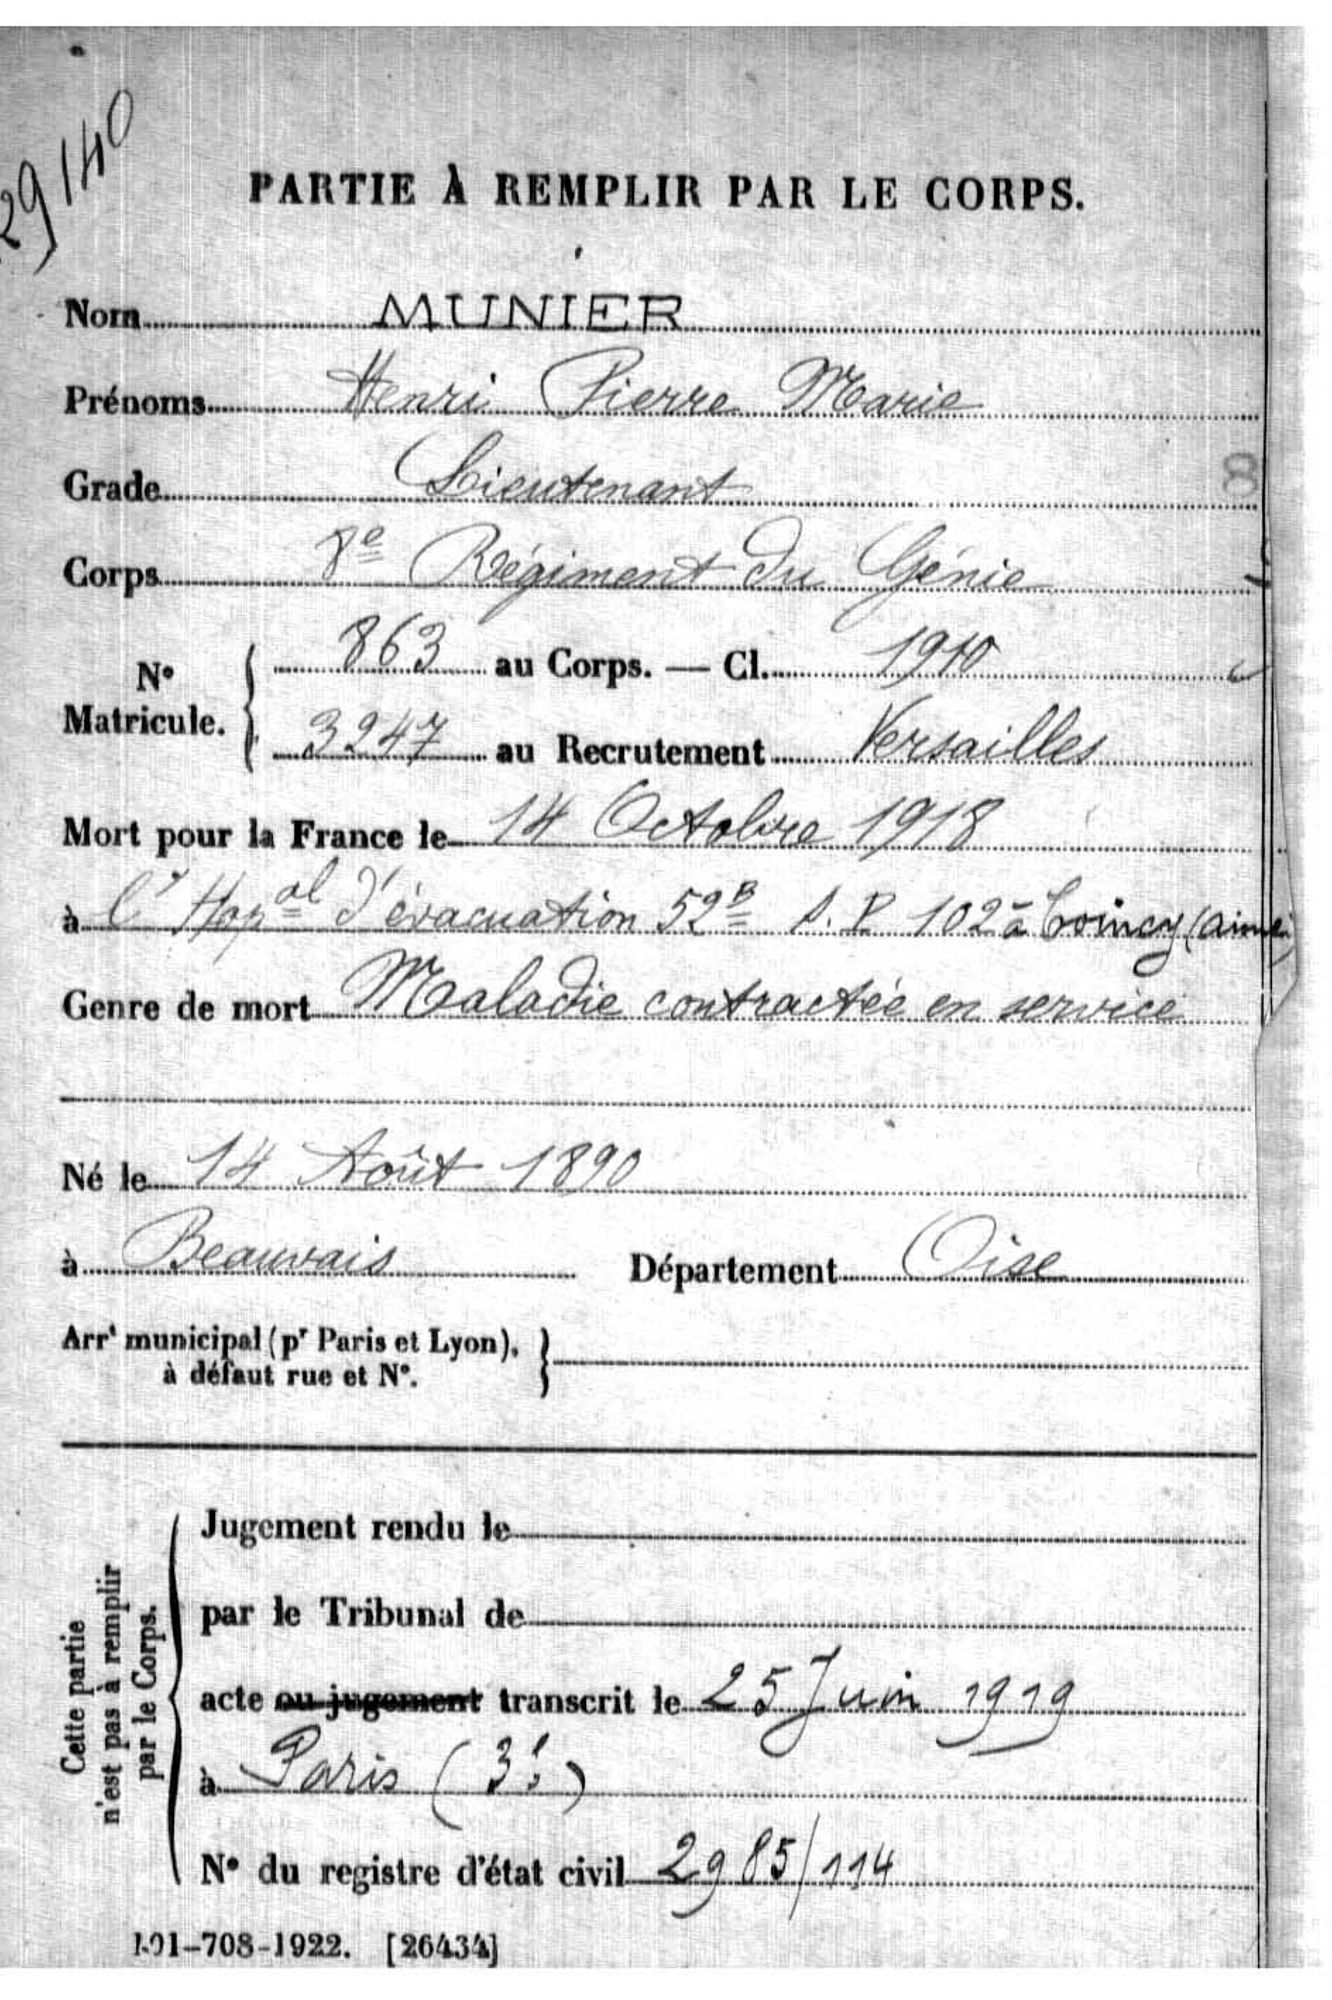 29140
PARTIE À REMPLIR PAR LE CORPS.
Nom MUNIER
Prénoms Henri Pierre Marie
Grade Lieutenant
8
Corps 8e Régiment du Génie
N° Matricule. { 863 au Corps. — Cl. 1910
3247 au Recrutement Versailles
Mort pour la France le 14 Octobre 1918
à l'Hopal d'évacuation 52B S.P. 102 à Coincy (Aisne)
Genre de mort Maladie contractée en service
Né le 14 Août 1890
à Beauvais Département Oise
Arrt municipal (pr Paris et Lyon), à défaut rue et N°. }
Cette partie n'est pas à remplir par le Corps.
Jugement rendu le
par le Tribunal de
acte ou jugement transcrit le 25 Juin 1919
à Paris (3e)
N° du registre d'état civil 2985/114
101-708-1922. [26434]